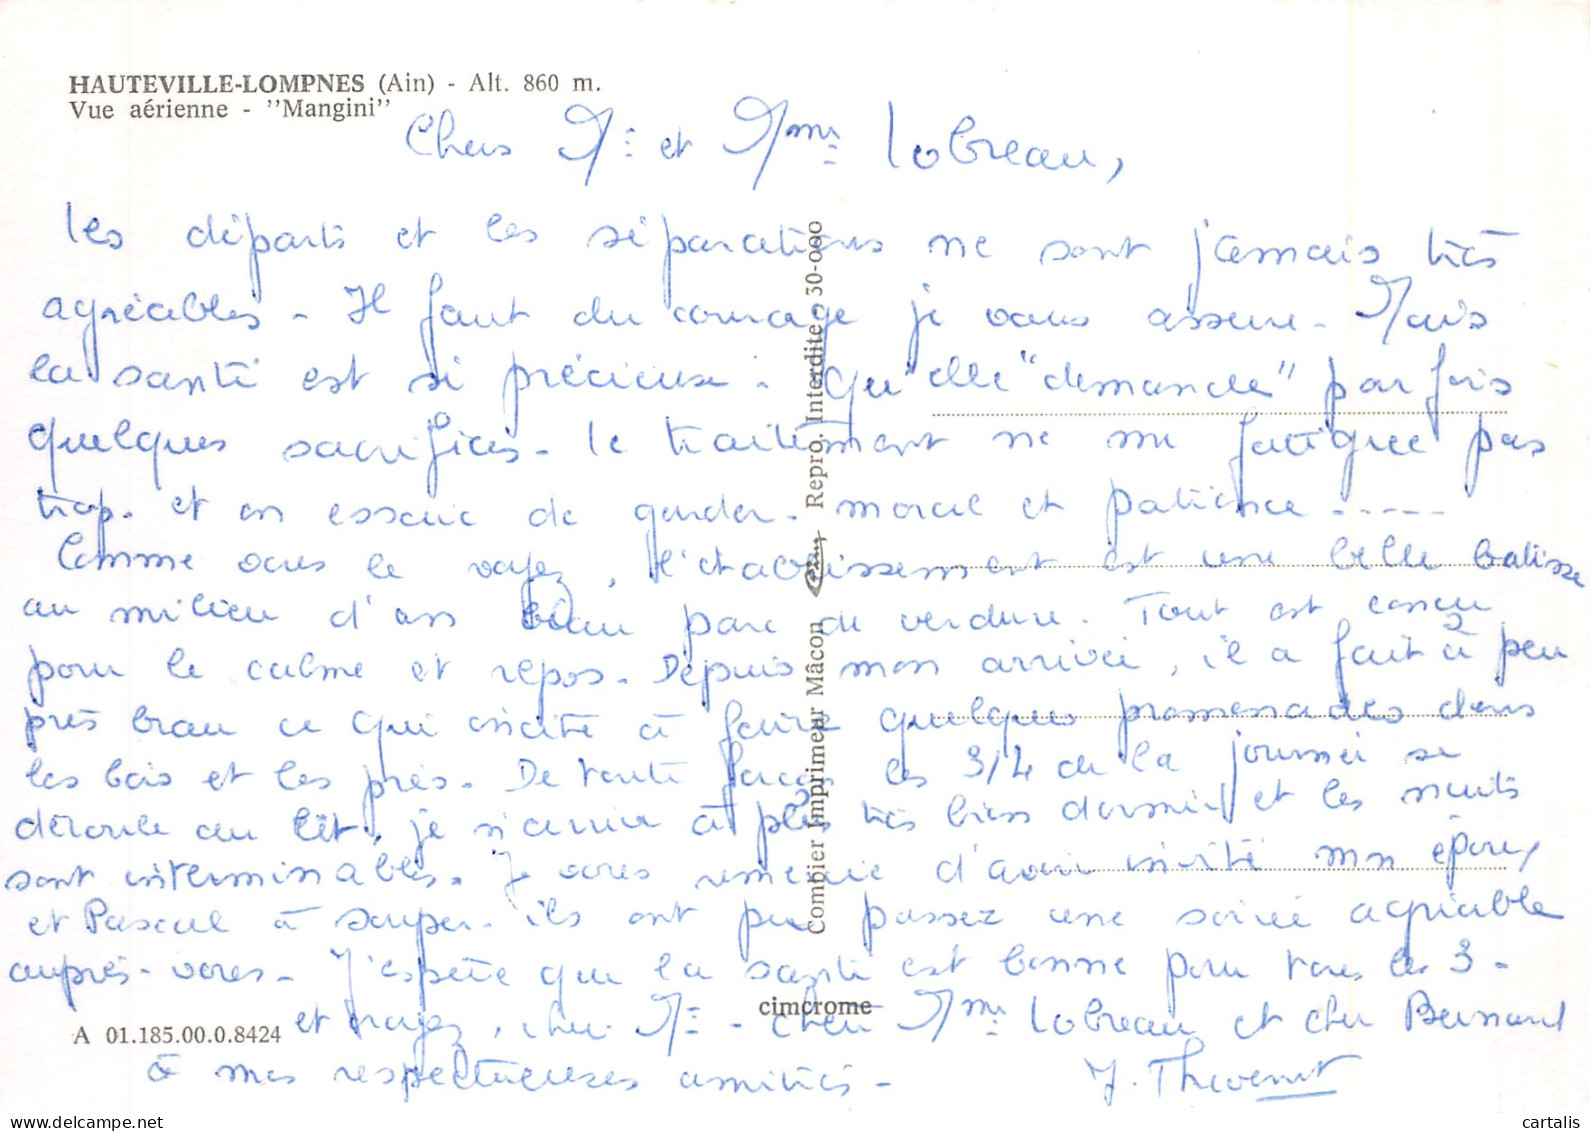 HAUTEVILLE-LOMPNES (Ain) - Alt. 860 m.
Vue aérienne - "Mangini"
Chers Mr et Mme Lobreau,
les départs et les séparations ne sont jamais très
agréables - Il faut du courage je vous assure - Mais
la santé est si précieuse - Qu'elle "demande" parfois
quelques sacrifices - le traitement ne me fatigue pas
trop. et on essaie de garder - moral et patience .....
Comme vous le voyez, l'établissement est une belle batisse
au milieu d'un beau parc de verdure. Tout est concu
pour le calme et repos - Depuis mon arrivée, il a fait à peu
près beau ce qui incite à faire quelques promenades dans
les bois et les prés - De toute façon les 3/4 de la journée se
déroule au lit, je n'arrive à plus très bien dormir et les nuits
sont interminables. Je vous remercie d'avoir invité mon époux
et Pascal à souper - ils ont pu passez une soirée agréable
auprès - vous - J'espère que la santé est bonne pour tous les 3 -
et croyez, cher Mr - chère Mme Lobreau et cher Bernard
à mes respectueuses amitiés -
J. Thevenet
A 01.185.00.0.8424
cimcrome
Combier Imprimeur Mâcon Repro. Interdite - 30-000
cartalis
delcampe.net